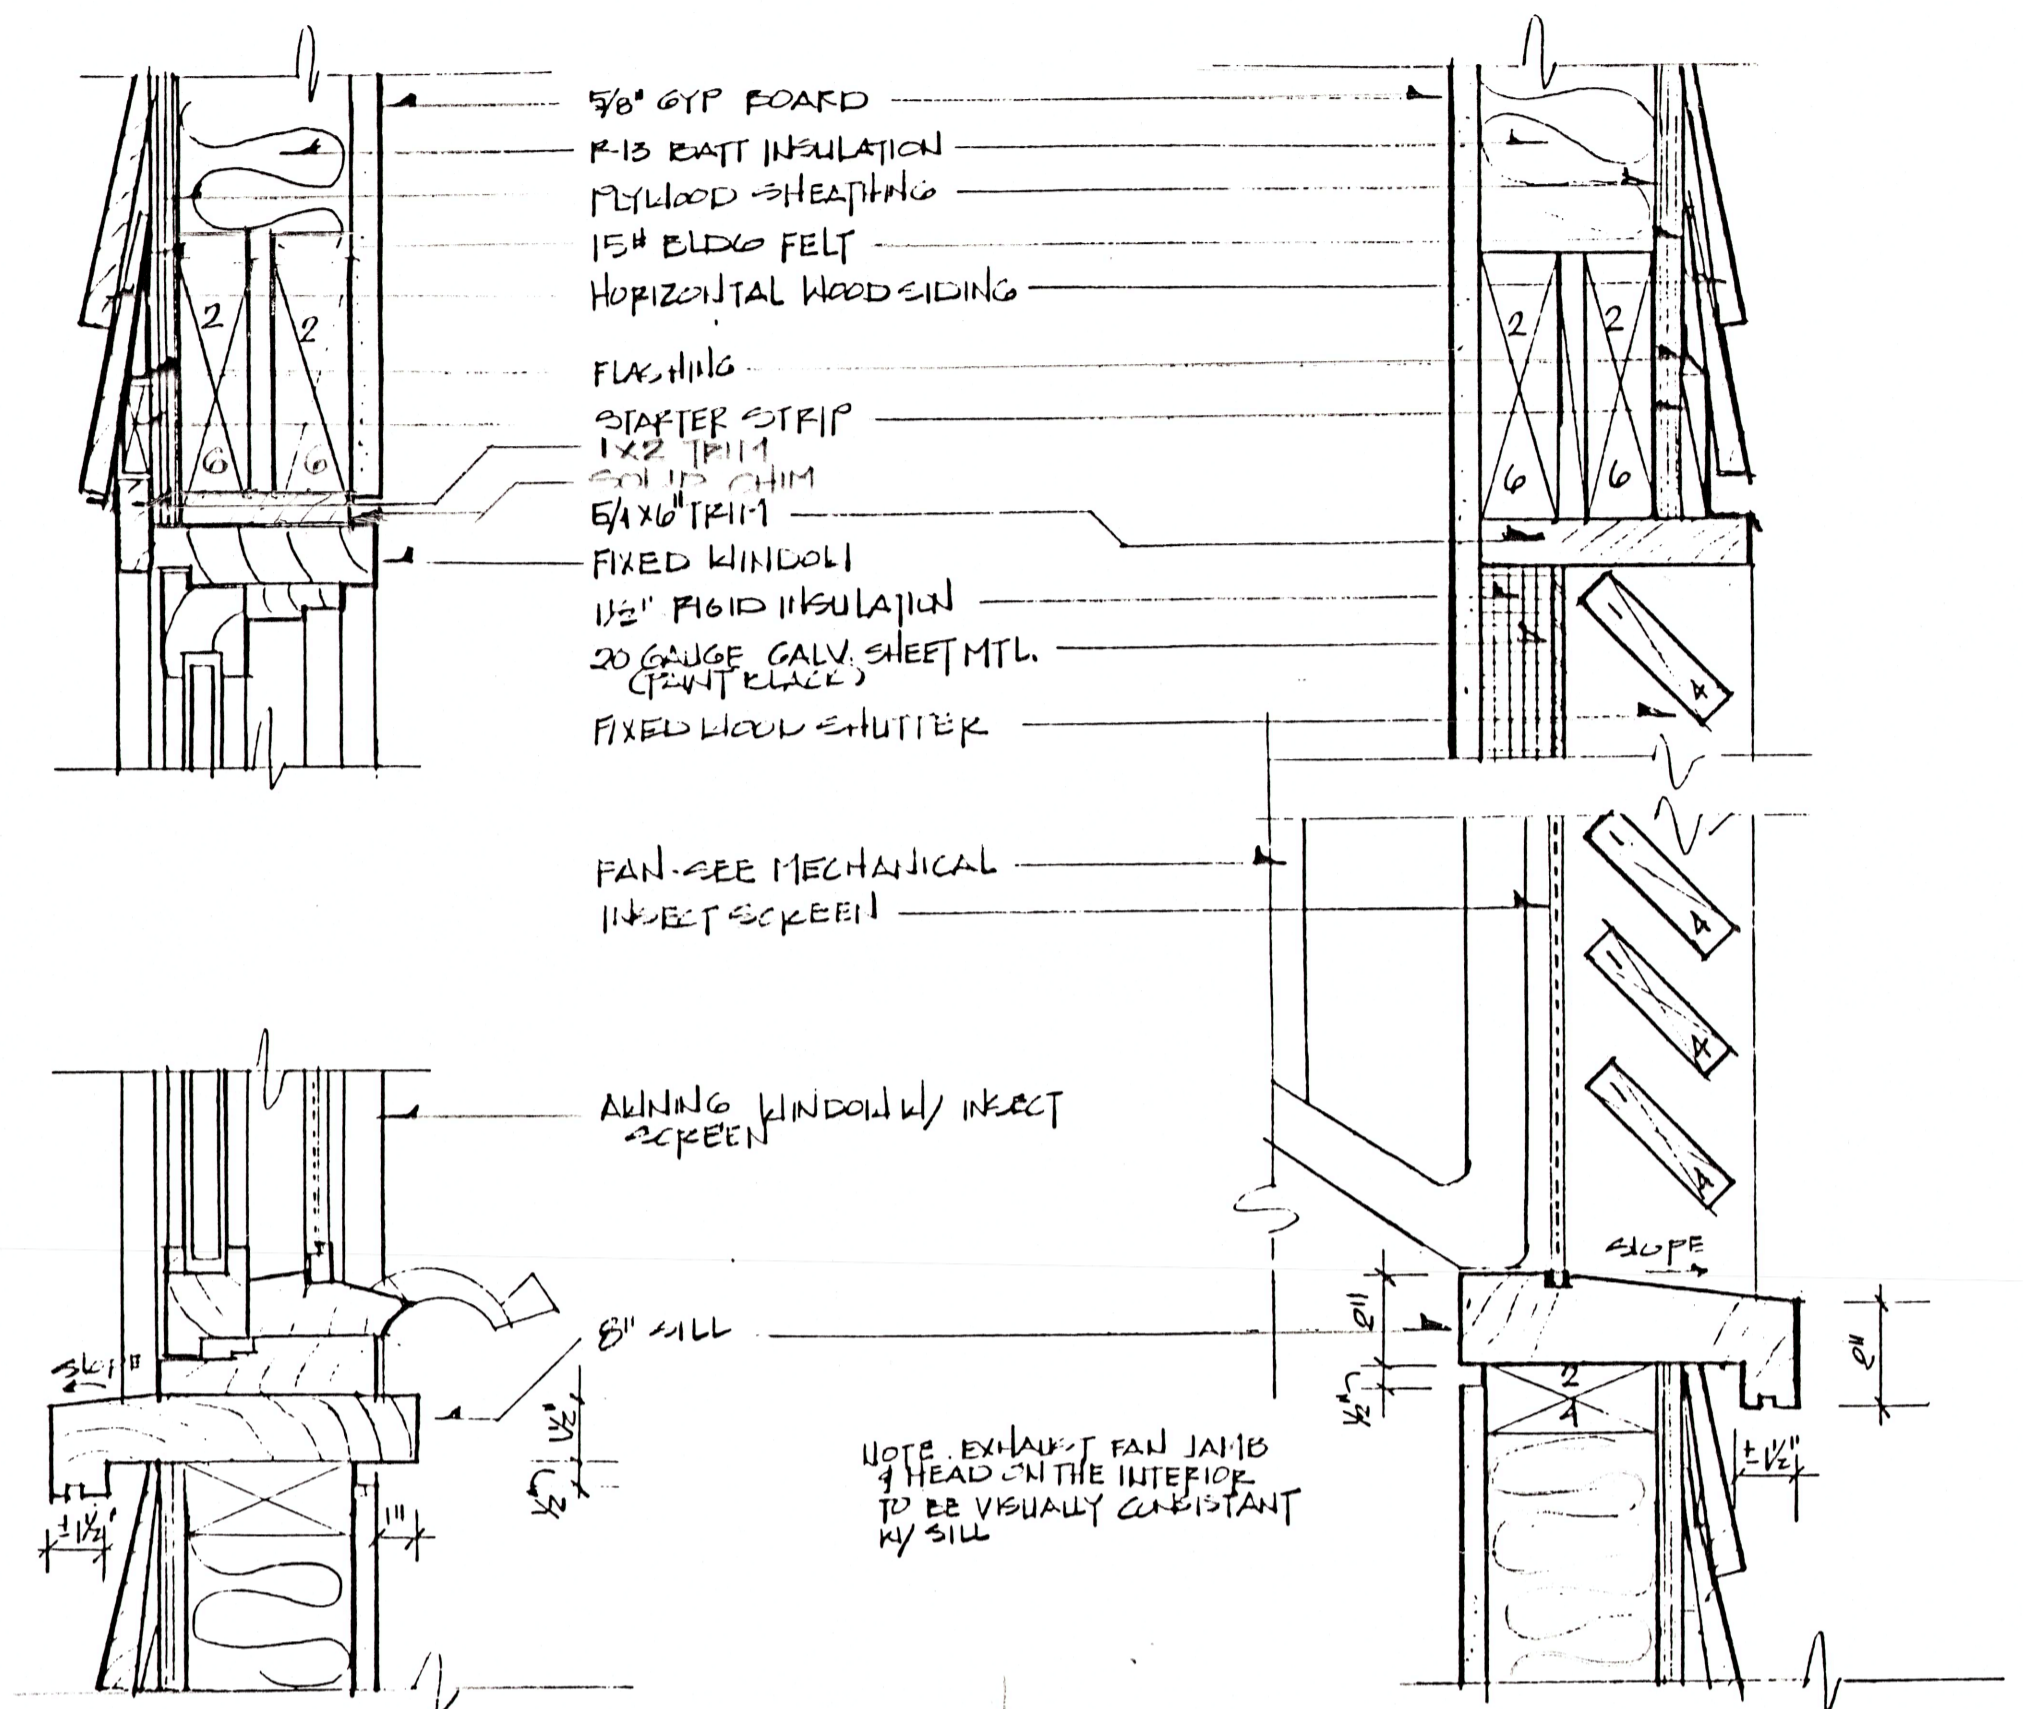 5/8" GYP BOARD
R-13 BATT INSULATION
PLYWOOD SHEATHING
15# BLDG FELT
HORIZONTAL WOOD SIDING
FLASHING
STARTER STRIP
1X2 TRIM
SOLID SHIM
5/4 X 6" TRIM
FIXED WINDOW
1½" RIGID INSULATION
20 GAUGE GALV. SHEET MTL.
(PAINT BLACK)
FIXED WOOD SHUTTER
FAN-SEE MECHANICAL
INSECT SCREEN
AWNING WINDOW W/ INSECT
SCREEN
8" SILL
NOTE. EXHAUST FAN JAMB
& HEAD ON THE INTERIOR
TO BE VISUALLY CONSISTANT
W/ SILL
2
2
6
6
2
2
6
6
1
4
4
1
4
1
4
SLOPE
SLOPE
2"
½"
2"
±1½"
2
4
1½"
3/4
±1½"
1"